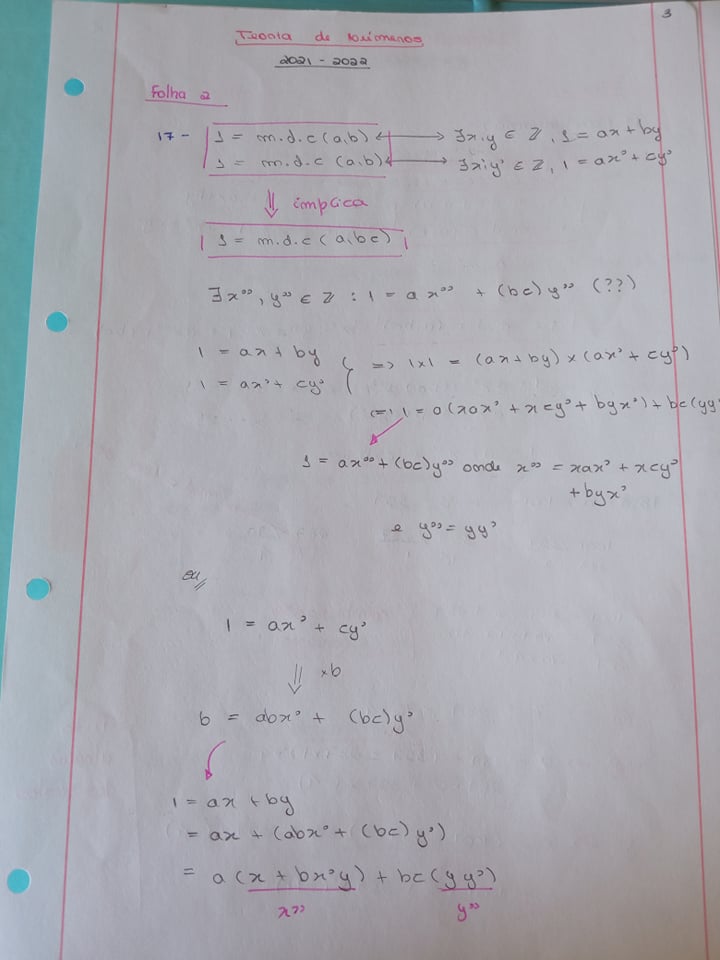 3
Teoria de Números
2021 - 2022
Folha 2
17 - 1 = m.d.c (a,b) ⟷ ∃x,y ∈ ℤ, 1 = ax + by
1 = m.d.c (a,b) ⟷ ∃x'y' ∈ ℤ, 1 = ax' + cy'
⇓ implica
1 = m.d.c (a,bc)
∃x'', y'' ∈ ℤ : 1 = ax'' + (bc)y'' (??)
1 = ax + by
1 = ax' + cy' } => 1x1 = (ax + by) × (ax' + cy')
(=) 1 = a(xax' + xcy' + byx') + bc(yy'
1 = ax'' + (bc)y'' onde x'' = xax' + xcy'
+ byx'
e y'' = yy'
ou,,
1 = ax' + cy'
⇓ ×b
b = abx' + (bc)y'
1 = ax + by
= ax + (abx' + (bc)y')
= a(x + bx'y) + bc(yy')
x'' y''